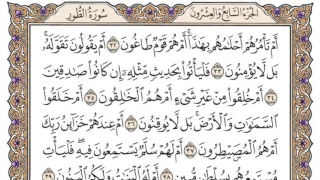 الجزء السابع والعشرون
سورة الطور
أم تأمرهم أحلمهم بهذا أم هم قوم طاغون ٣٢ أم يقولون تقوله
بل لا يؤمنون ٣٣ فليأتوا بحديث مثله إن كانوا صدقين
٣٤ أم خلقوا من غير شيء أم هم الخلقون ٣٥ أم خلقوا
السموت والأرض بل لا يوقنون ٣٦ أم عندهم خزائن ربك
أم هم المصيطرون ٣٧ أم لهم سلم يستمعون فيه فليأت
مستمعهم بسلطن مبين ٣٨ أم له البنت ولكم البنون ٣٩